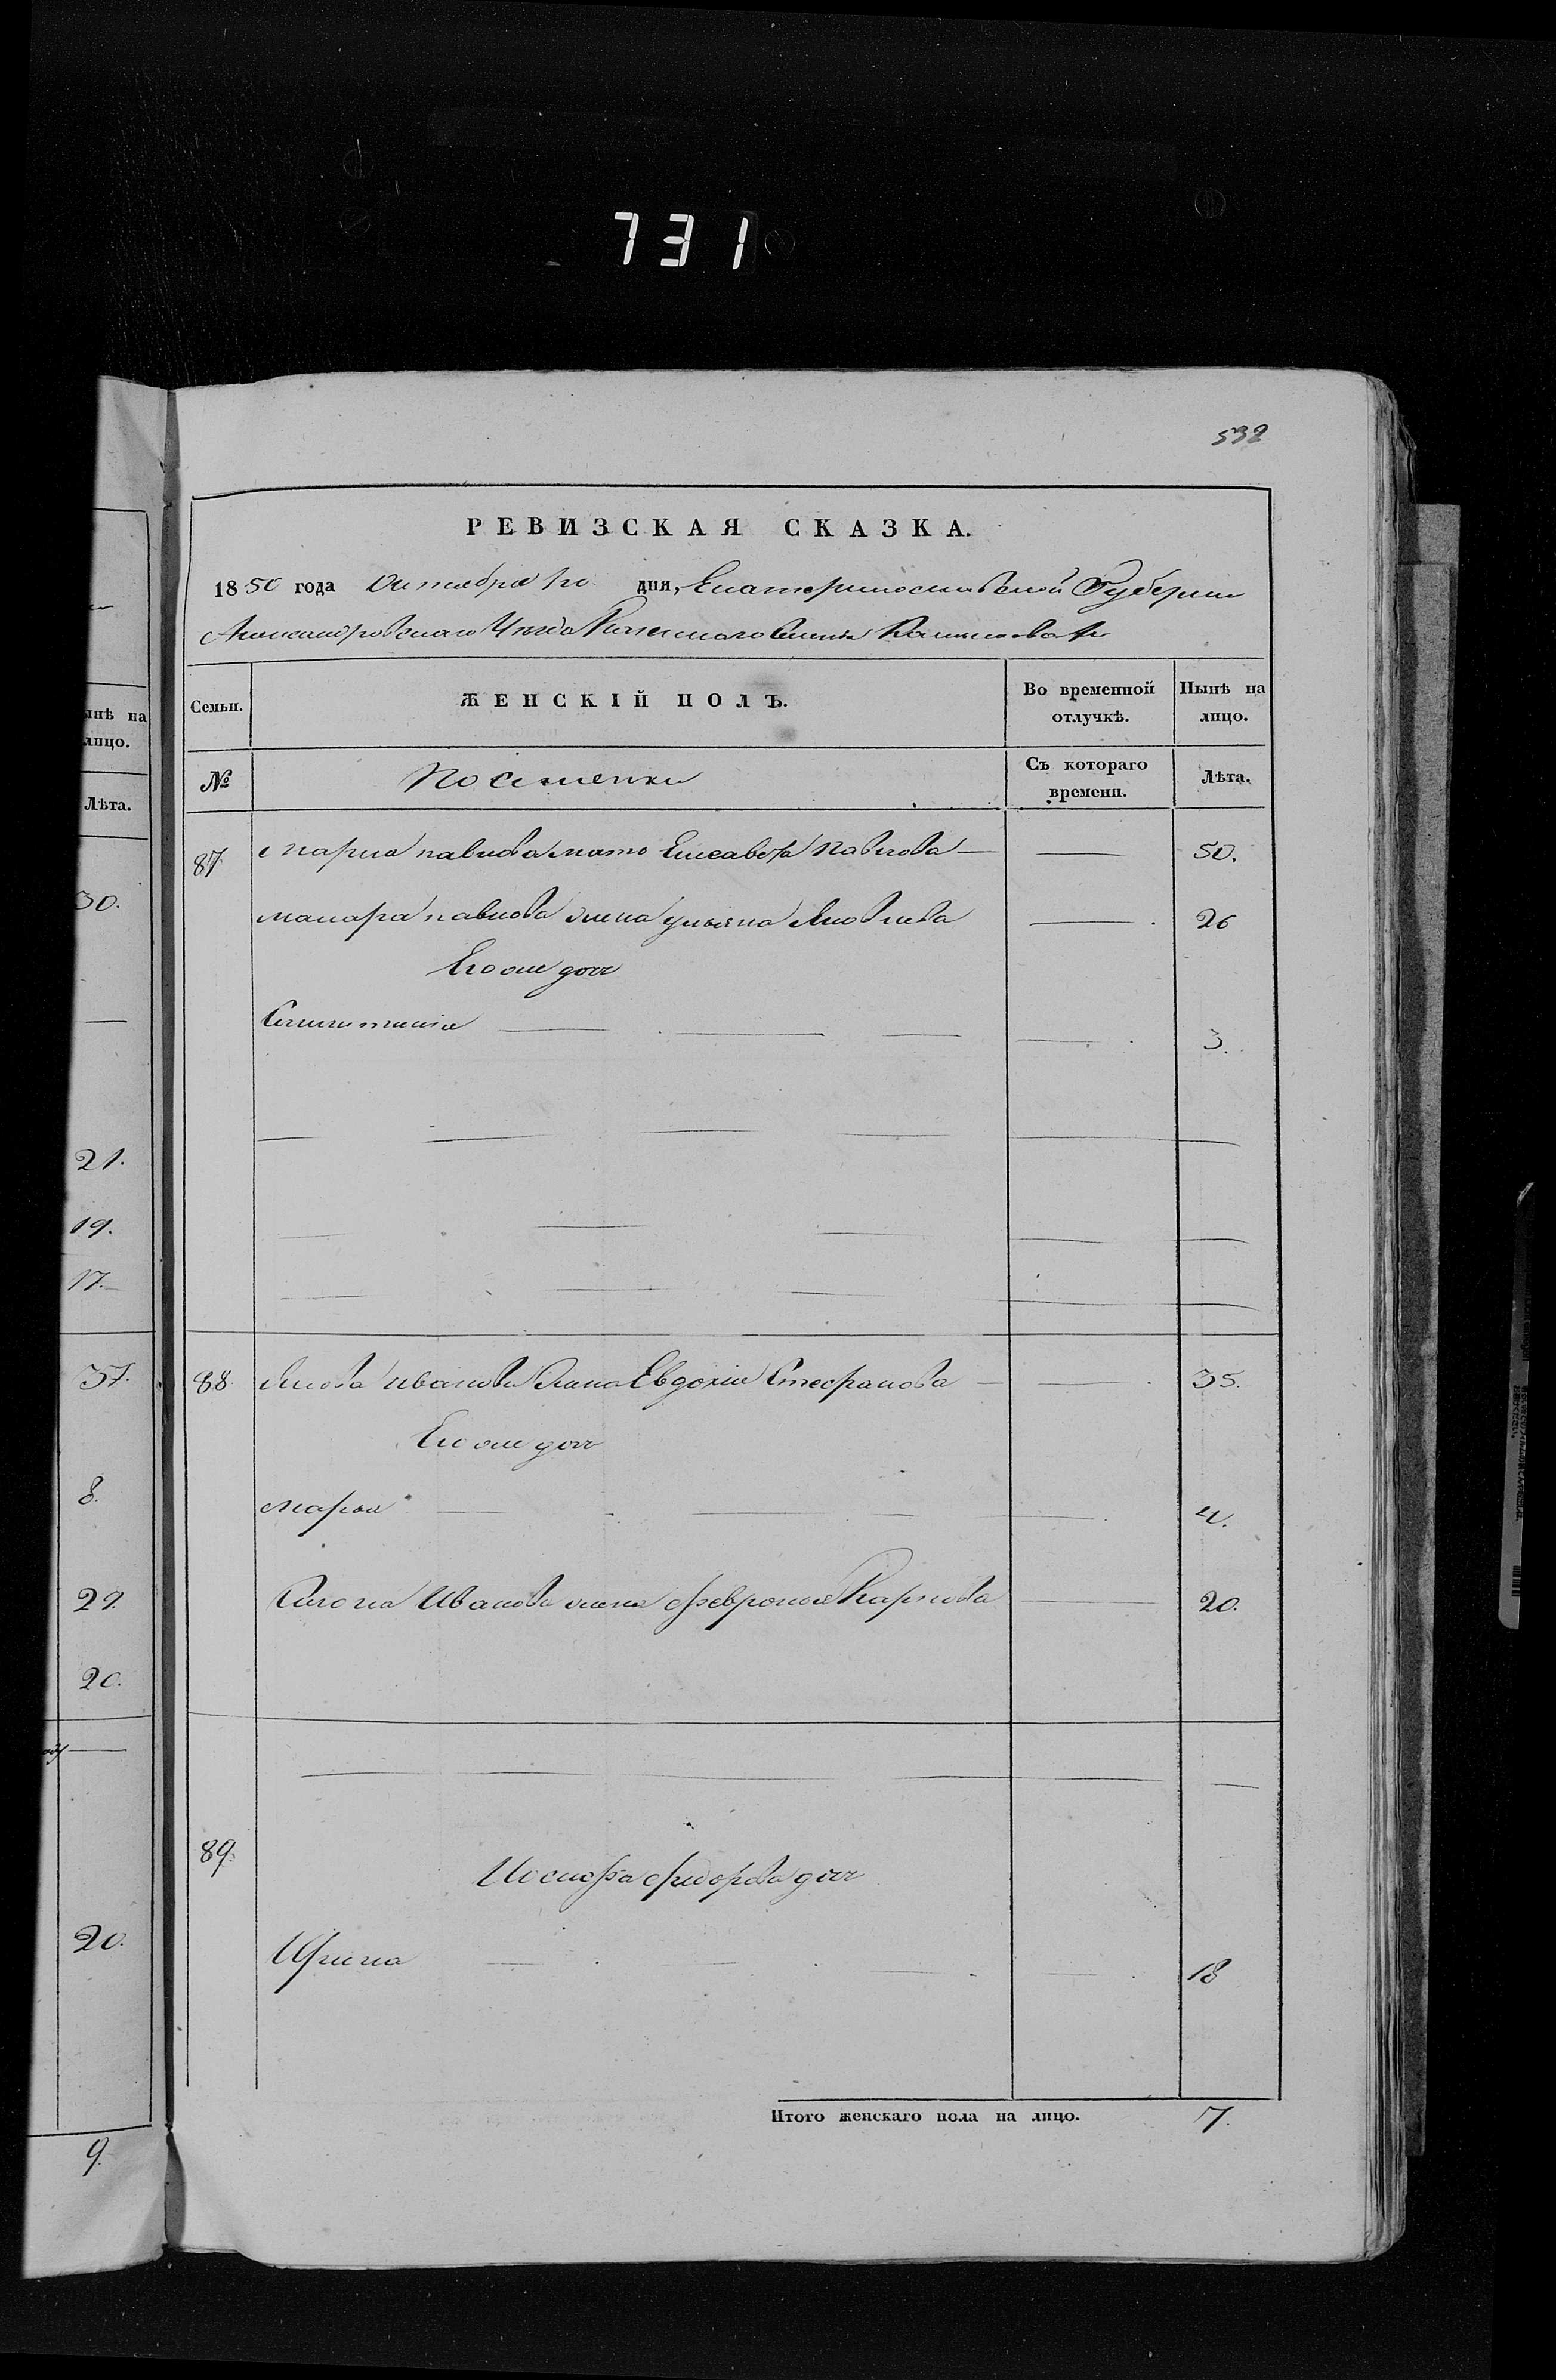 731
532
РЕВИЗСКАЯ СКАЗКА.
1850 года Октября 20 дня, Екатеринославской Губернии
Александровскаго Уезда Казеннаго Селения
Семьи.
ЖЕНСКІЙ ПОЛЪ.
Во временной отлучкѣ.
Нынѣ на лицо.
№
Поселенки
Съ котораго времени.
Лѣта.
87 Марка павлова мать Елисавета Павлова — — 50.
макара павлова жена ульяна Яковлева — 26
Его же доч
— 3.
88. Якова Иванова жена Евдокия Стефанова — — 35.
Его же доч
Марья — 4.
Иванова жена февронья Карпова — 20.
89.
Иосифа фиодорова доч
Ирина — 18
Итого женскаго пола на лицо. 7.
ынѣ на
лицо.
Лѣта.
30.
21.
19.
17.
37.
8.
29.
20.
20.
9.